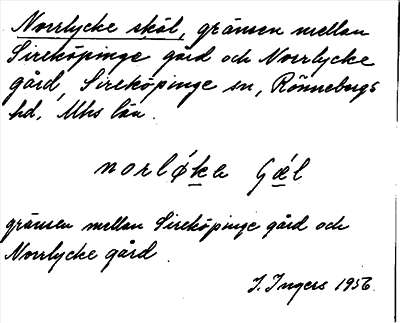 Norrlycke skäl, gränsen mellan
Sireköpinge gård och Norrlycke
gård, Sireköpinge sn, Rönnebergs
hd, Mhs län.
norløkə
gränsen mellan Sireköpinge gård och
Norrlycke gård.
I. Ingers 1956.